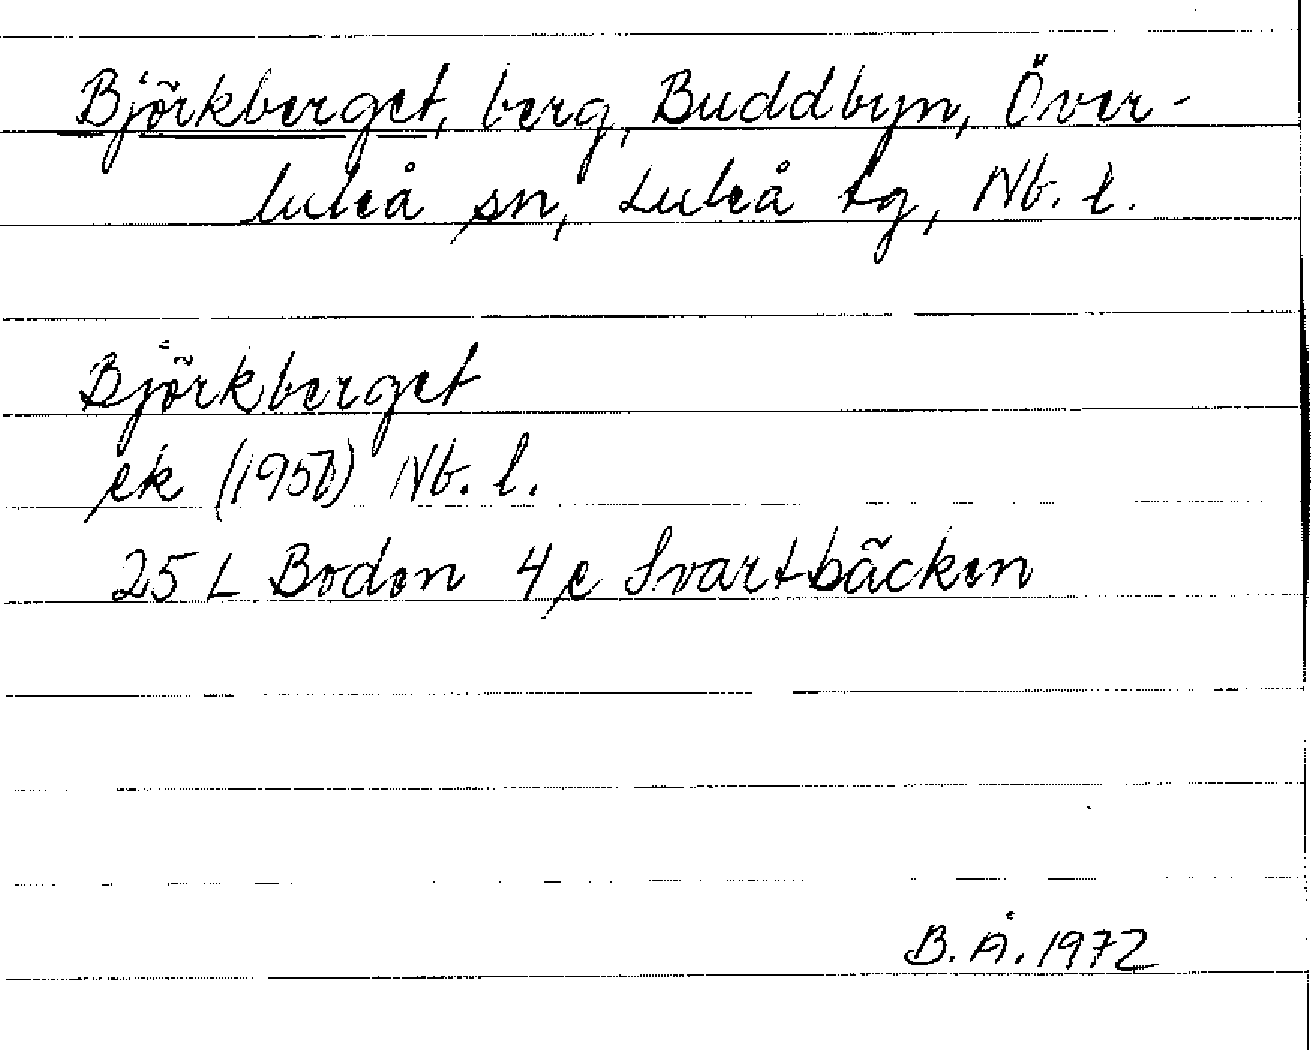 Björkberget, berg, Buddbyn, Över-
luleå sn, Luleå tg, Nb. l.
Björkberget
ek Nb. l.
25 L Boden 4 e Svartbäcken
B. Å. 1972